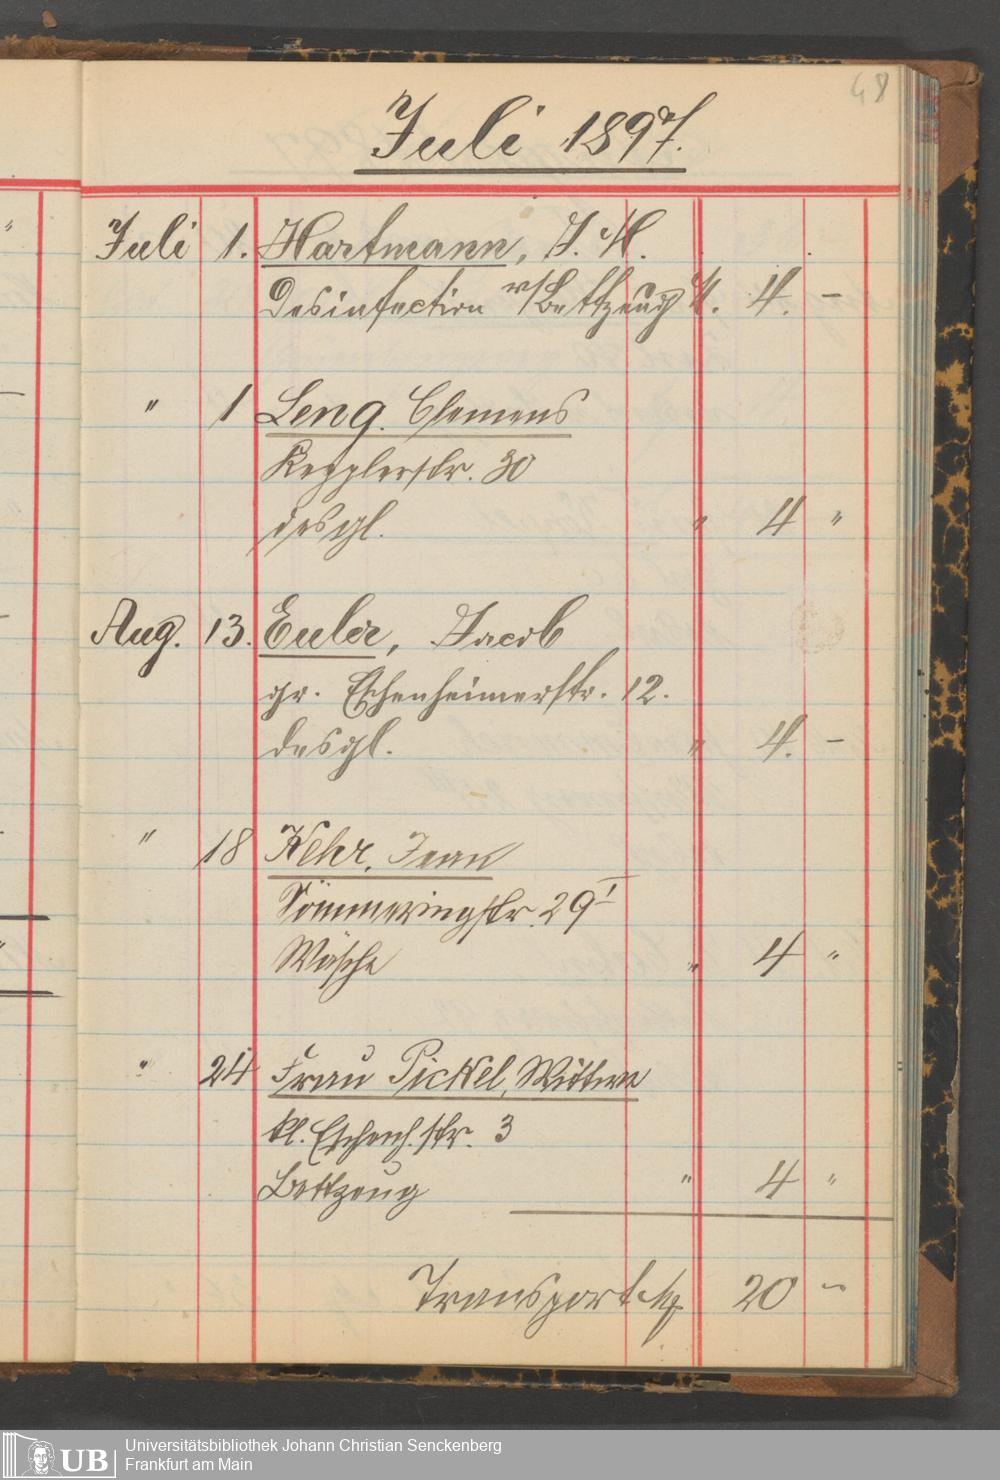 48
Juli 1897.
Juli 1. Hartmann, J. M.
Desinfection v/ Bettzeug M. 4. –
" 1 Leng. Clemens
Kepplerstr. 30
desgl. " 4 "
Aug. 13. Euler, Jacob
gr. Eschenheimerstr. 12.
desgl. " 4. –
" 18 Kehr, Jean
Sömmeringstr. 29 I
Wäsche " 4 "
" 24 Frau Pickel, Wittwe
kl. Eschenh. str. 3
Bettzeug " 4 "
Transport M 20 –
UB
Universitätsbibliothek Johann Christian Senckenberg
Frankfurt am Main